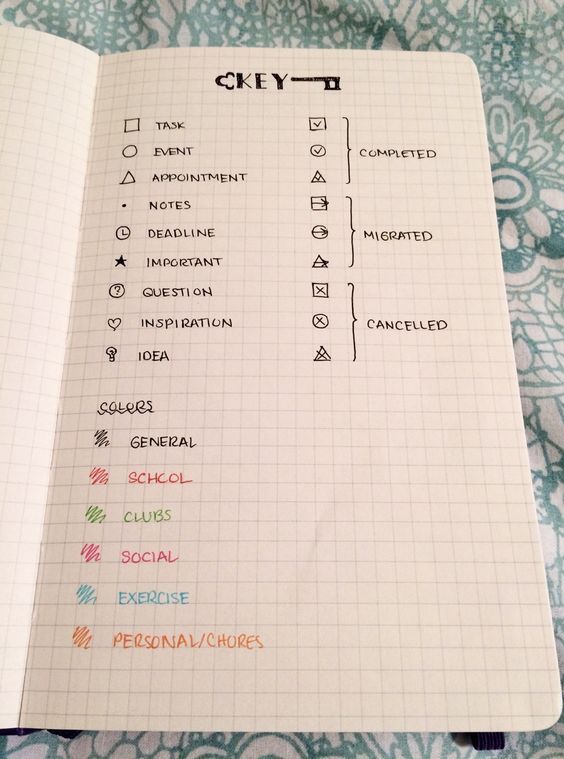 KEY
TASK
EVENT
APPOINTMENT
NOTES
DEADLINE
IMPORTANT
QUESTION
INSPIRATION
IDEA
COMPLETED
MIGRATED
CANCELLED
COLORS
GENERAL
SCHOOL
CLUBS
SOCIAL
EXERCISE
PERSONAL/CHORES